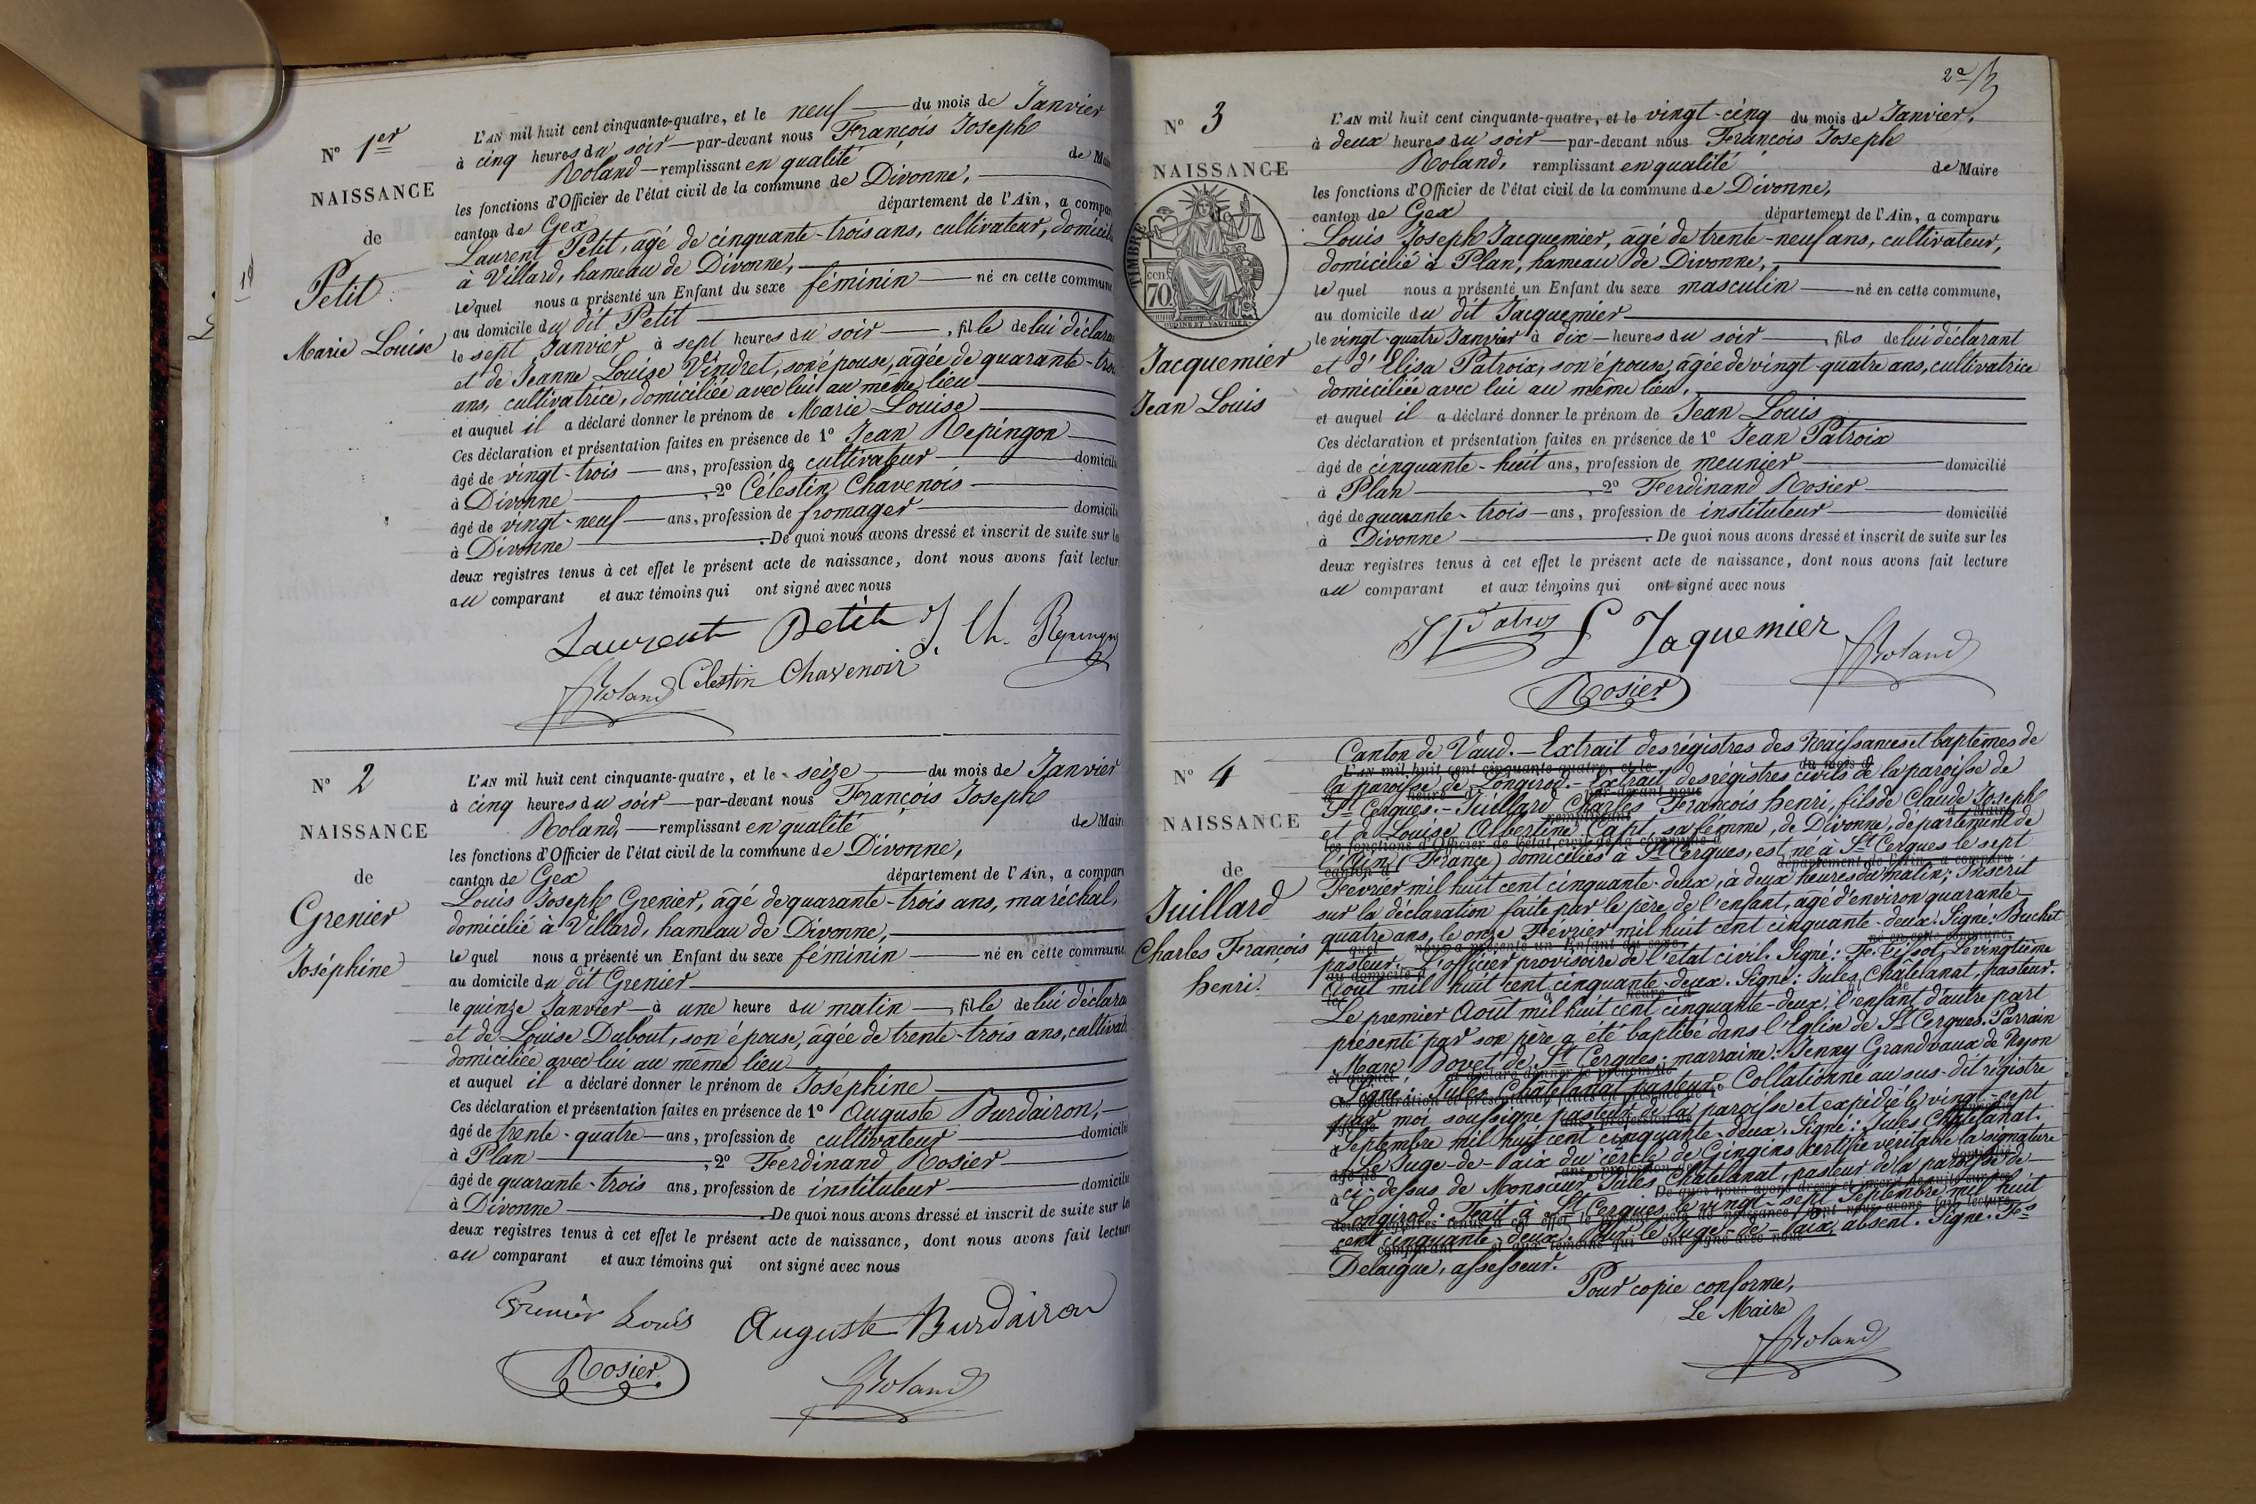 N° 1er
NAISSANCE
de
Petit
Marie Louise
19
L'AN mil huit cent cinquante-quatre, et le neuf du mois de Janvier
à cinq heures du soir par-devant nous François Joseph
Roland remplissant en qualité de Maire
les fonctions d'Officier de l'état civil de la commune de Divonne,
canton de Gex département de l'Ain, a compar
Laurent Petit, agé de cinquante-trois ans, cultivateur, domicili
à Villard, hameau de Divonne,
lequel nous a présenté un Enfant du sexe féminin né en cette commune
au domicile du dit Petit
le sept Janvier à sept heures du soir, fille de lui déclara
et de Jeanne Louise Vindret, son épouse, agée de quarante-tro
ans, cultivatrice, domiciliée avec lui au même lieu
et auquel il a déclaré donner le prénom de Marie Louise
Ces déclaration et présentation faites en présence de 1° Jean Repingon
âgé de vingt-trois ans, profession de cultivateur domicili
à Divonne, 2° Célestin Chavenois
âgé de vingt-neuf ans, profession de fromager domicili
à Divonne. De quoi nous avons dressé et inscrit de suite sur le
deux registres tenus à cet effet le présent acte de naissance, dont nous avons fait lectur
au comparant et aux témoins qui ont signé avec nous
Laurent Petit J. Ch. Repingon
Roland Celestin Chavenoir
N° 2
NAISSANCE
de
Grenier
Joséphine
L'AN mil huit cent cinquante-quatre, et le seize du mois de Janvier
à cinq heures du soir par-devant nous François Joseph
Roland, remplissant en qualité de Maire
les fonctions d'Officier de l'état civil de la commune de Divonne,
canton de Gex département de l'Ain, a comparu
Louis Joseph Grenier, âgé de quarante-trois ans, maréchal,
domicilié à Villard, hameau de Divonne,
lequel nous a présenté un Enfant du sexe féminin né en cette commune
au domicile du dit Grenier
le quinze Janvier à une heure du matin, fille de lui déclara
et de Louise Dubout, son épouse, agée de trente-trois ans, cultivat
domiciliée avec lui au même lieu
et auquel il a déclaré donner le prénom de Joséphine
Ces déclaration et présentation faites en présence de 1° Auguste Burdairon,
âgé de trente-quatre ans, profession de cultivateur domicilié
à Plan, 2° Ferdinand Rosier
âgé de quarante-trois ans, profession de instituteur domicili
à Divonne. De quoi nous avons dressé et inscrit de suite sur le
deux registres tenus à cet effet le présent acte de naissance, dont nous avons fait lecture
au comparant et aux témoins qui ont signé avec nous
Grenier Louis Auguste Burdairon
Rosier Roland
2e
N° 3
NAISSANCE
de
TIMBRE
70 cen
Jacquemier
Jean Louis
L'AN mil huit cent cinquante-quatre, et le vingt-cinq du mois de Janvier,
à deux heures du soir par-devant nous François Joseph
Roland, remplissant en qualité de Maire
les fonctions d'Officier de l'état civil de la commune de Divonne,
canton de Gex département de l'Ain, a comparu
Louis Joseph Jacquemier, âgé de trente-neuf ans, cultivateur,
domicilié à Plan, hameau de Divonne,
lequel nous a présenté un Enfant du sexe masculin né en cette commune,
au domicile du dit Jacquemier
le vingt-quatre Janvier à dix heures du soir, fils de lui déclarant
et d'Elisa Patroix, son épouse, agée de vingt-quatre ans, cultivatrice
domiciliée avec lui au même lieu,
et auquel il a déclaré donner le prénom de Jean Louis
Ces déclaration et présentation faites en présence de 1° Jean Patroix
âgé de cinquante-huit ans, profession de meunier domicilié
à Plan, 2° Ferdinand Rosier
âgé de quarante-trois ans, profession de instituteur domicilié
à Divonne. De quoi nous avons dressé et inscrit de suite sur les
deux registres tenus à cet effet le présent acte de naissance, dont nous avons fait lecture
au comparant et aux témoins qui ont signé avec nous
L Jaquemier Roland
Rosier
N° 4
NAISSANCE
de
Juillard
Charles François
henri.
Canton de Vaud. Extrait des régistres des Naissances et baptêmes de
la paroisse de Longirod. Extrait des régistres civils de la paroisse de
St Cergues. Juillard Charles François henri, fils de Claude Joseph
et de Louise Albertine Capt, sa femme, de Divonne, département de
l'Ain (France) domiciliés à St Cergues, est né à St Cergues le sept
Fevrier mil huit cent cinquante-deux, à deux heures du matin; Inscrit
sur la déclaration faite par le père de l'enfant, agé d'environ quarante
quatre ans, le onze Fevrier mil huit cent cinquante-deux. Signé: Buchet
pasteur. L'officier provisoire de l'état civil. Signé: F. Tissot, Le vingtième
Août mil huit cent cinquante-deux. Signé: Jules Châtelanat, pasteur.
Le premier Août mil huit cent cinquante-deux, l'enfant d'autre part
présenté par son père a été baptisé dans l'Eglise de St Cergues. Parrain
Marc Bovet de St Cergues; marraine: Jenny Grandvaux de Nyon
Signé: Jules Châtelanat pasteur. Collationné au sus-dit régistre
par moi soussigné pasteur de la paroisse et expédié le vingt-sept
Septembre mil huit cent cinquante-deux. Signé: Jules Châtelanat.
Le Juge-de-Paix du cercle de Gingins certifie véritable la signature
ci-dessus de Monsieur Jules Châtelanat, pasteur de la paroisse de
Longirod. Fait à St Cergues le vingt-sept Septembre mil huit
cent cinquante-deux. Pour le Juge-de-Paix, absent. Signé: Fs
Delaigue, assesseur.
Pour copie conforme,
Le Maire
Roland